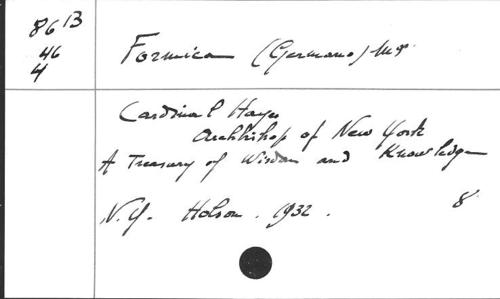 86 B
46
4
Formica (Germano) Mgr.
Cardinal Hayes
Archbishop of New York
A Treasury of Wisdom and Knowledge
N.Y. Holson. 1932.
8